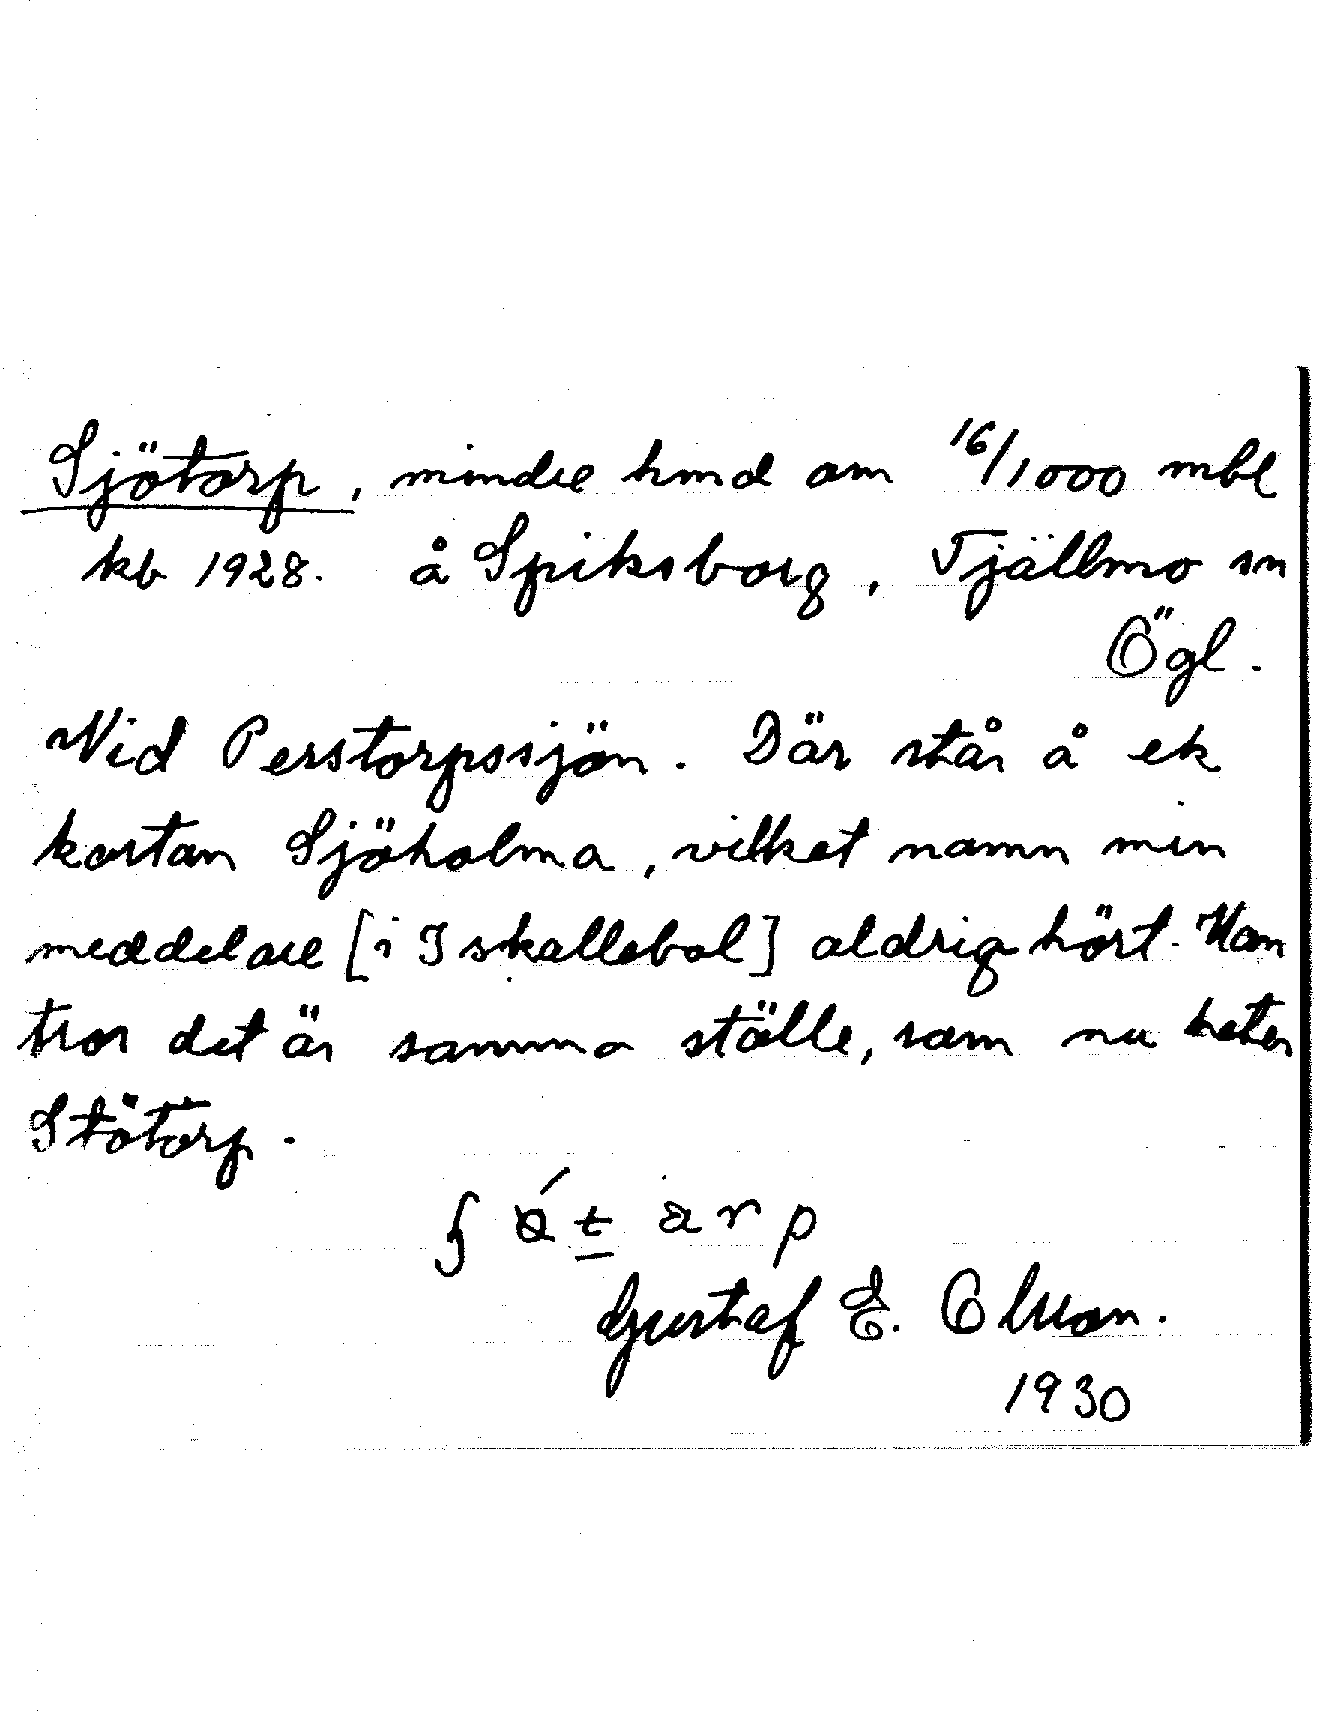 Sjötorp, mindre hmd om 16/1000 mtl
kb 1928. å Spiksborg, Tjällmo sn
Ögl.
Vid Perstorpssjön. Där står å ek
kartan Sjöholma, vilket namn min
meddelare [i Iskallebol] aldrig hört. Han
tror det är samma ställe, som nu heter
Stötorp.
Gustaf E. Olson.
1930